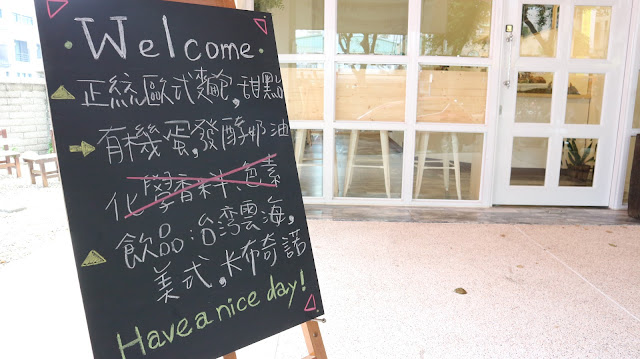 Welcome
正統歐式麵包,甜點
有機蛋,發酵奶油
化學香料、色素
飲品:台灣雲海,
美式,卡布奇諾
Have a nice day!